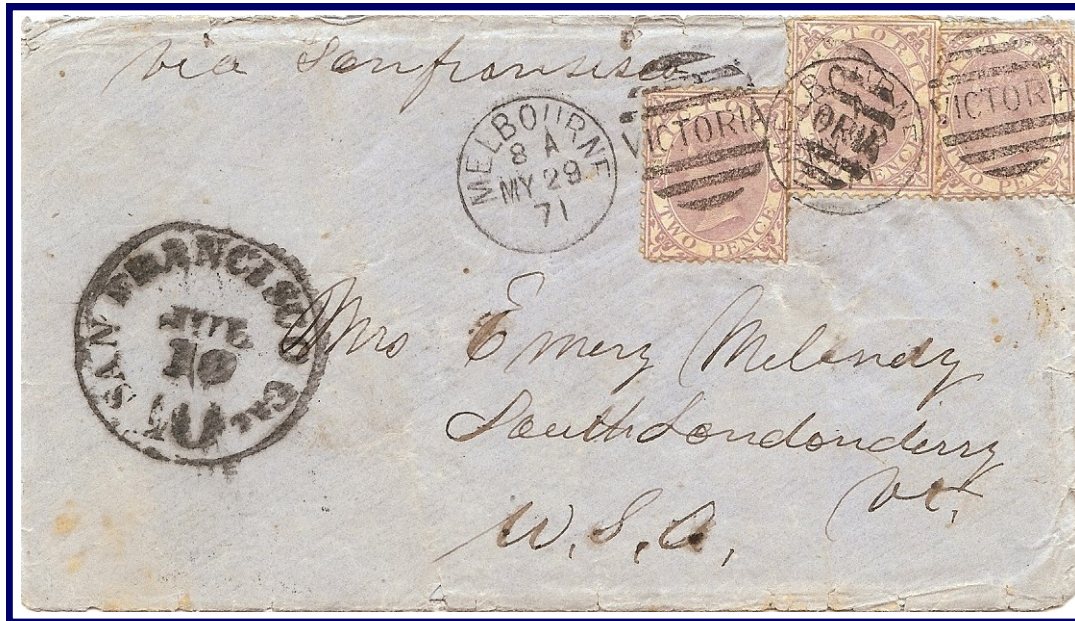 via Sanfransisco
MELBOURNE
8 A
MY 29
71
VICTORIA
TWO PENCE
VICTORIA
VICTORIA
TWO PENCE
SAN FRANCISCO CAL
JUL
10
Mrs Emery Melendy
South Londonderry
Vt.
U.S.A.